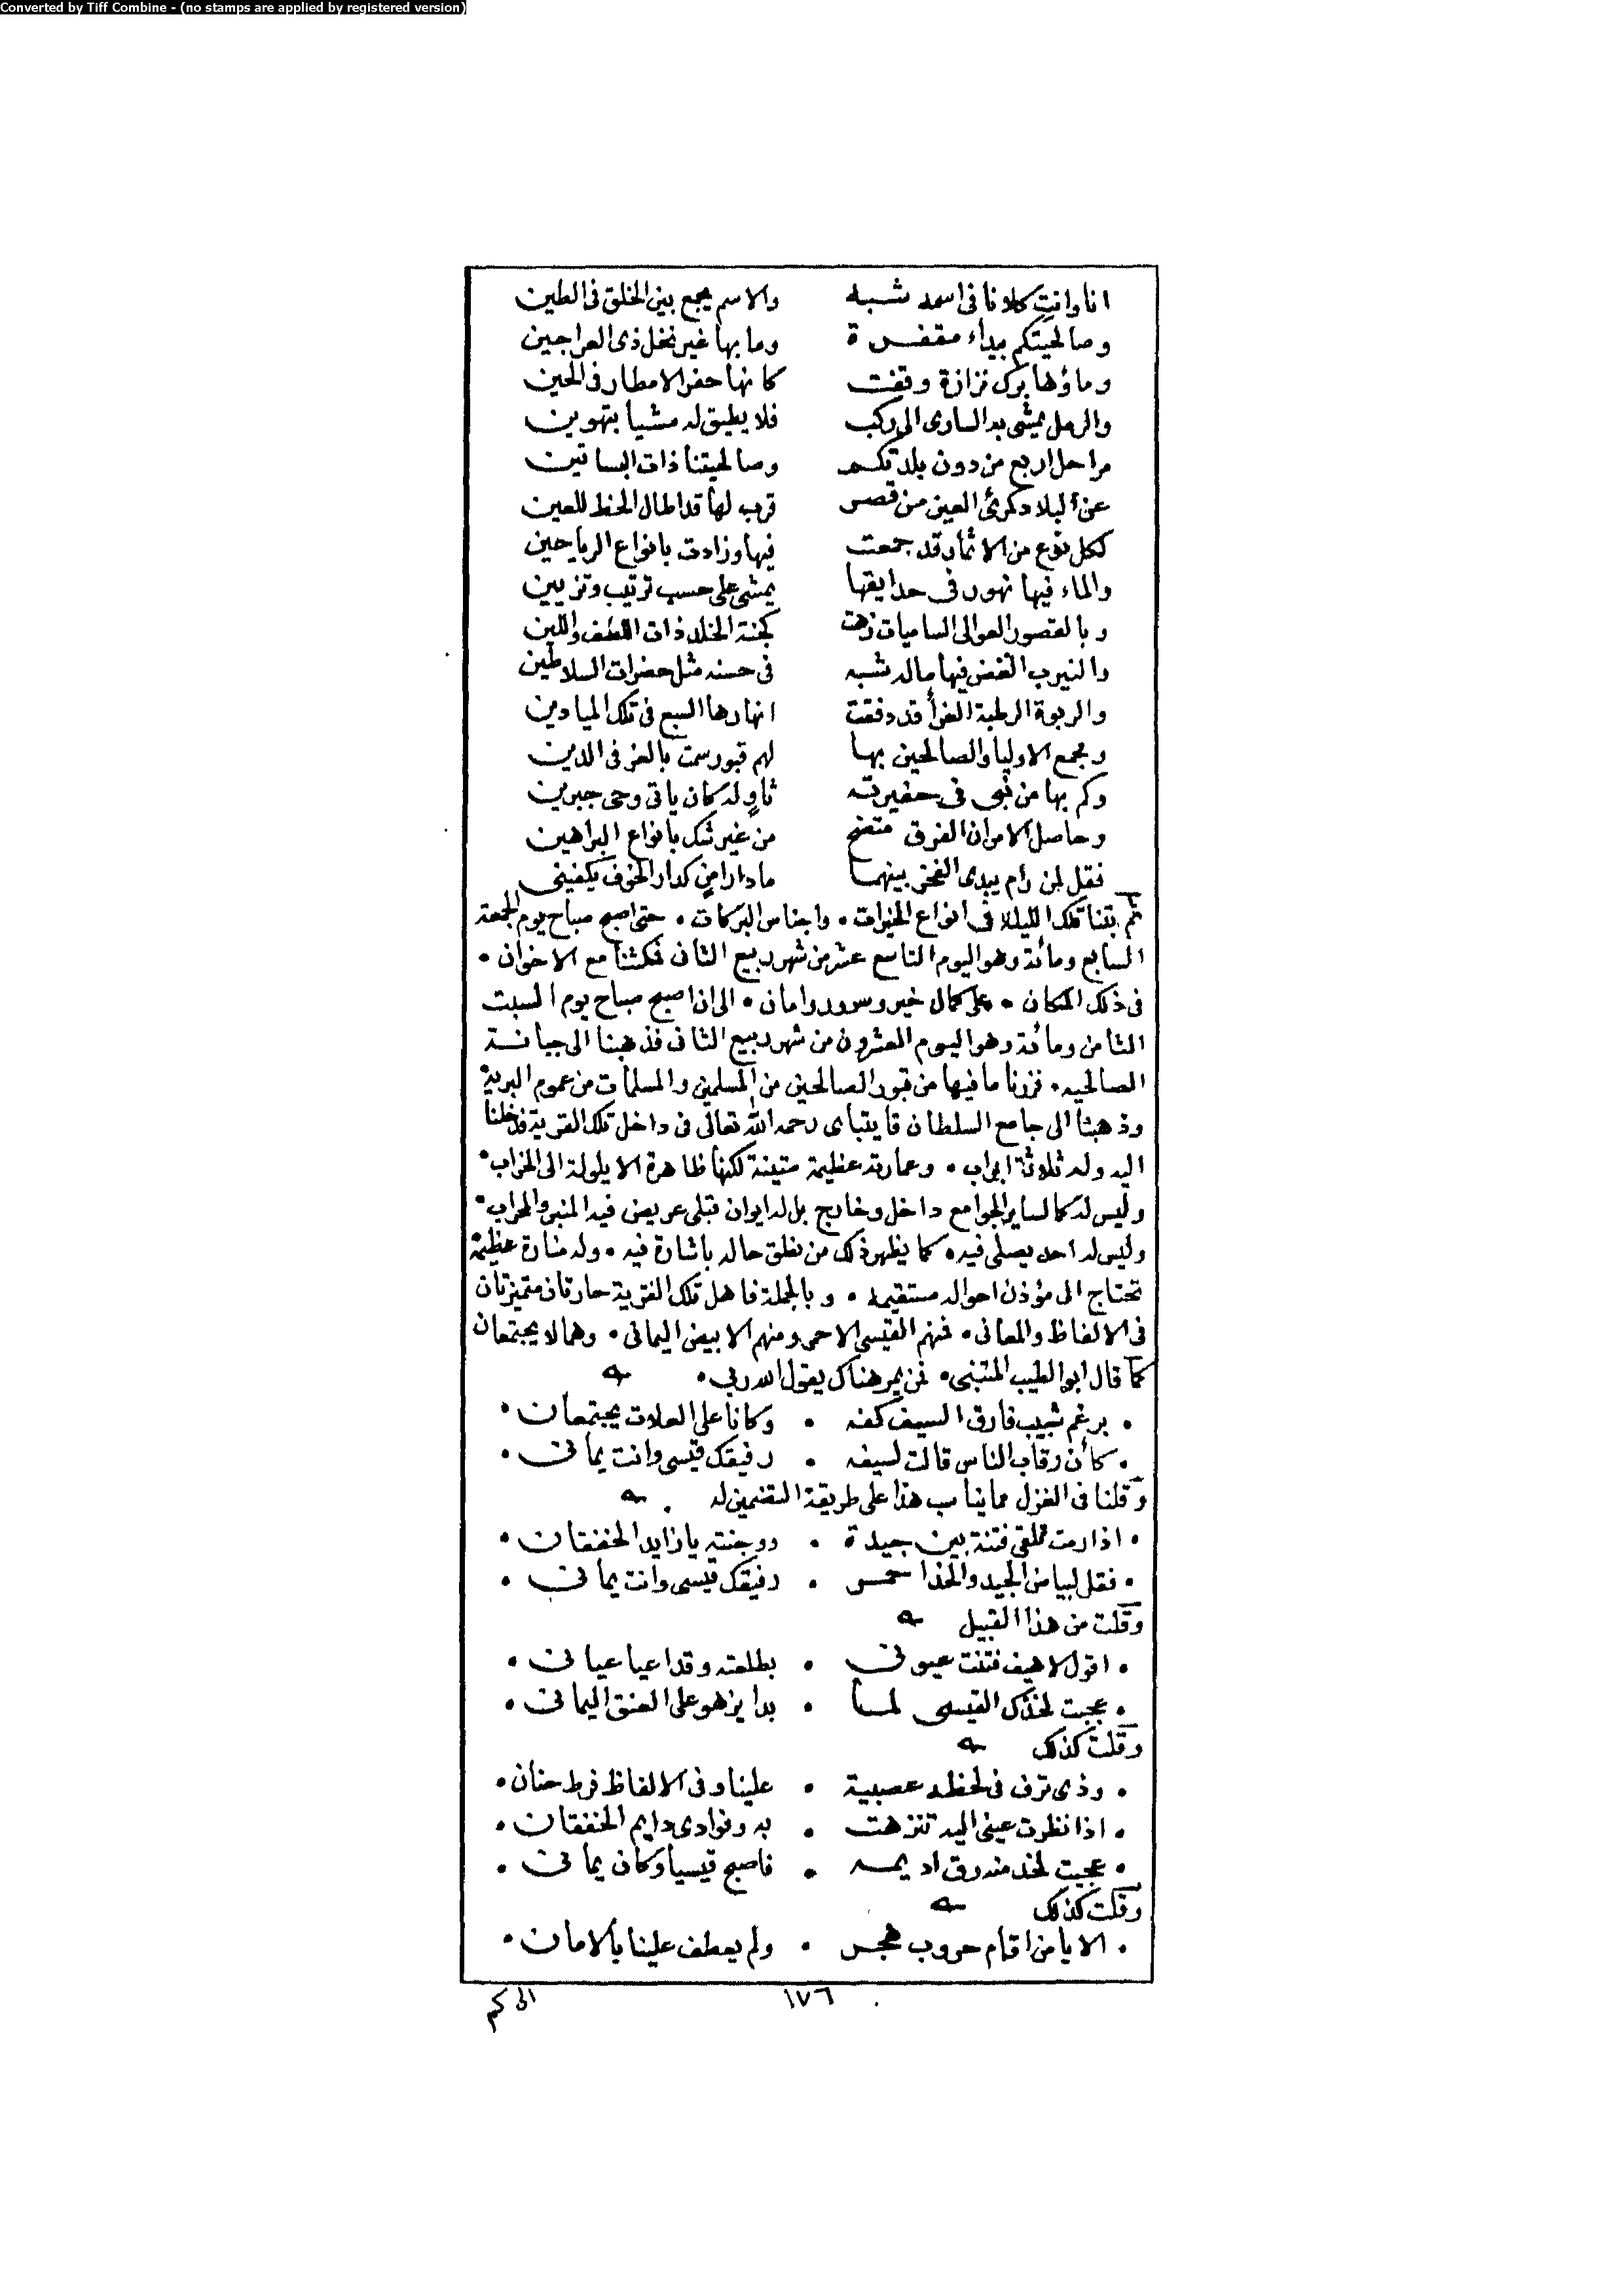 Converted by Tiff Combine - (no stamps are applied by registered version)
انا وانت كلانا فى اسمه شبه والاسم يجمع بين الخلق فى الطين
وصالحيتكم بيداء مقفرة وما بها غير نخل ذى العراجين
وماؤها برك نزازة وقفت كانها حفر الامطار فى الحين
والرمل يمشى به السارى الى ركب فلا يطيق له مشيا بتهوين
مراحل اربع من دون بلدتكم وصالحيتنا ذات البساتين
عن البلاد كمرئ العين من قصر قرب لها قد اطال الحظ للعين
ككل نوع من الاثمار قد جمعت فيها وزادت بانواع الرياحين
والماء فيها نهور فى حدايقها يمشى على حسب ترتيب وتزيين
وبالقصور العوالى الساميات زهت كجنة الخلد ذات اللطف واللين
والنيرب الغض فيها ماله شبه فى حسنه مثل حضرات السلاطين
والربوة الرطبة الغرأ قد دفقت انهارها السبع فى تلك الميادين
ومجمع الاوليا والصالحين بها لهم قبور سمت بالعز فى الدين
وكم بها من نبى فى حفيرته ثاوٍ له كان ياتى وحى جبرين
وحاصل الامر ان الفرق متضح من غير شك بانواع البراهين
فقل لمن رأم يبدى الفخر بينهما ما دار امن كدار الخوف يكفينى
ثم بتنا تلك الليلة فى انواع الخيرات • واجناس البركات • حتى اصبح صباح يوم الجمعة
السابع ومائة وهو اليوم التاسع عشر من شهر ربيع الثانى فمكثنا مع الاخوان •
فى ذلك المكان • على كمال خير وسرور وامان • الى ان اصبح صباح يوم السبت
الثامن ومائة وهو اليوم العشرون من شهر ربيع الثانى فذهبنا الى جبانة
الصالحيه • فزرنا ما فيها من قبور الصالحين من المسلمين والمسلمات من عموم البرية
وذهبنا الى جامع السلطان قايتباى رحمه الله تعالى فى داخل تلك القرية فدخلنا
اليه وله ثلاثة ابواب • وعمارته عظيمة متينة لكنها ظاهرة الايلولة الى الخراب •
وليس له كما لساير الجوامع داخل وخارج بل له ايوان قبلى عريض فيه المنبر والمحراب •
وليس له احد يصلى فيه • كما يظهر ذلك من نطق حاله باشارة فيه • وله منارة عظيمة
تحتاج الى مؤذن احواله مستقيمه • وبالجملة فاهل تلك القرية حارتان متميزتان
فى الالفاظ والمعانى • فمنهم القيسى الاحمر ومنهم الابيض اليمانى • وهما لا يجتمعان
كما قال ابو الطيب المتنبى • فمن يمر هناك يقول الله ربى •
• برغم شبيب فارق السيف كفه • وكانا على العلات يجتمعان •
• كأن رقاب الناس قالت لسيفه • رفيقك قيسى وانت يمانى •
وقلنا فى الغزل مما يناسب هذا على طريقة التضمين له
• اذا رمت تلقى فتنة بين جيدة • ووجنته يا زايد الخفقان •
• فقل لبياض الجيد والخد احمر • رفيقك قيسى وانت يمانى •
وقلت من هذا القبيل
• اقول لاهيف فتنت عيونى • بطلعته وقد اعيا عيانى •
• عجبت لخدك القيسى لما • بدا يزهو على العنق اليمانى •
وقلت كذلك
• وذى ترف فى لحظه عصبية • علينا وفى الالفاظ فرط حنان •
• اذا نظرت عينى اليه تنزهت • به وفوادى دايم الخفقان •
• عجبت لخد منه رق اديمه • فاصبح قيسيا وكان يمانى •
وقلت كذلك
• الا يا من اقام حروب هجر • ولم يعطف علينا بالامان •
الى كم
١٧٦